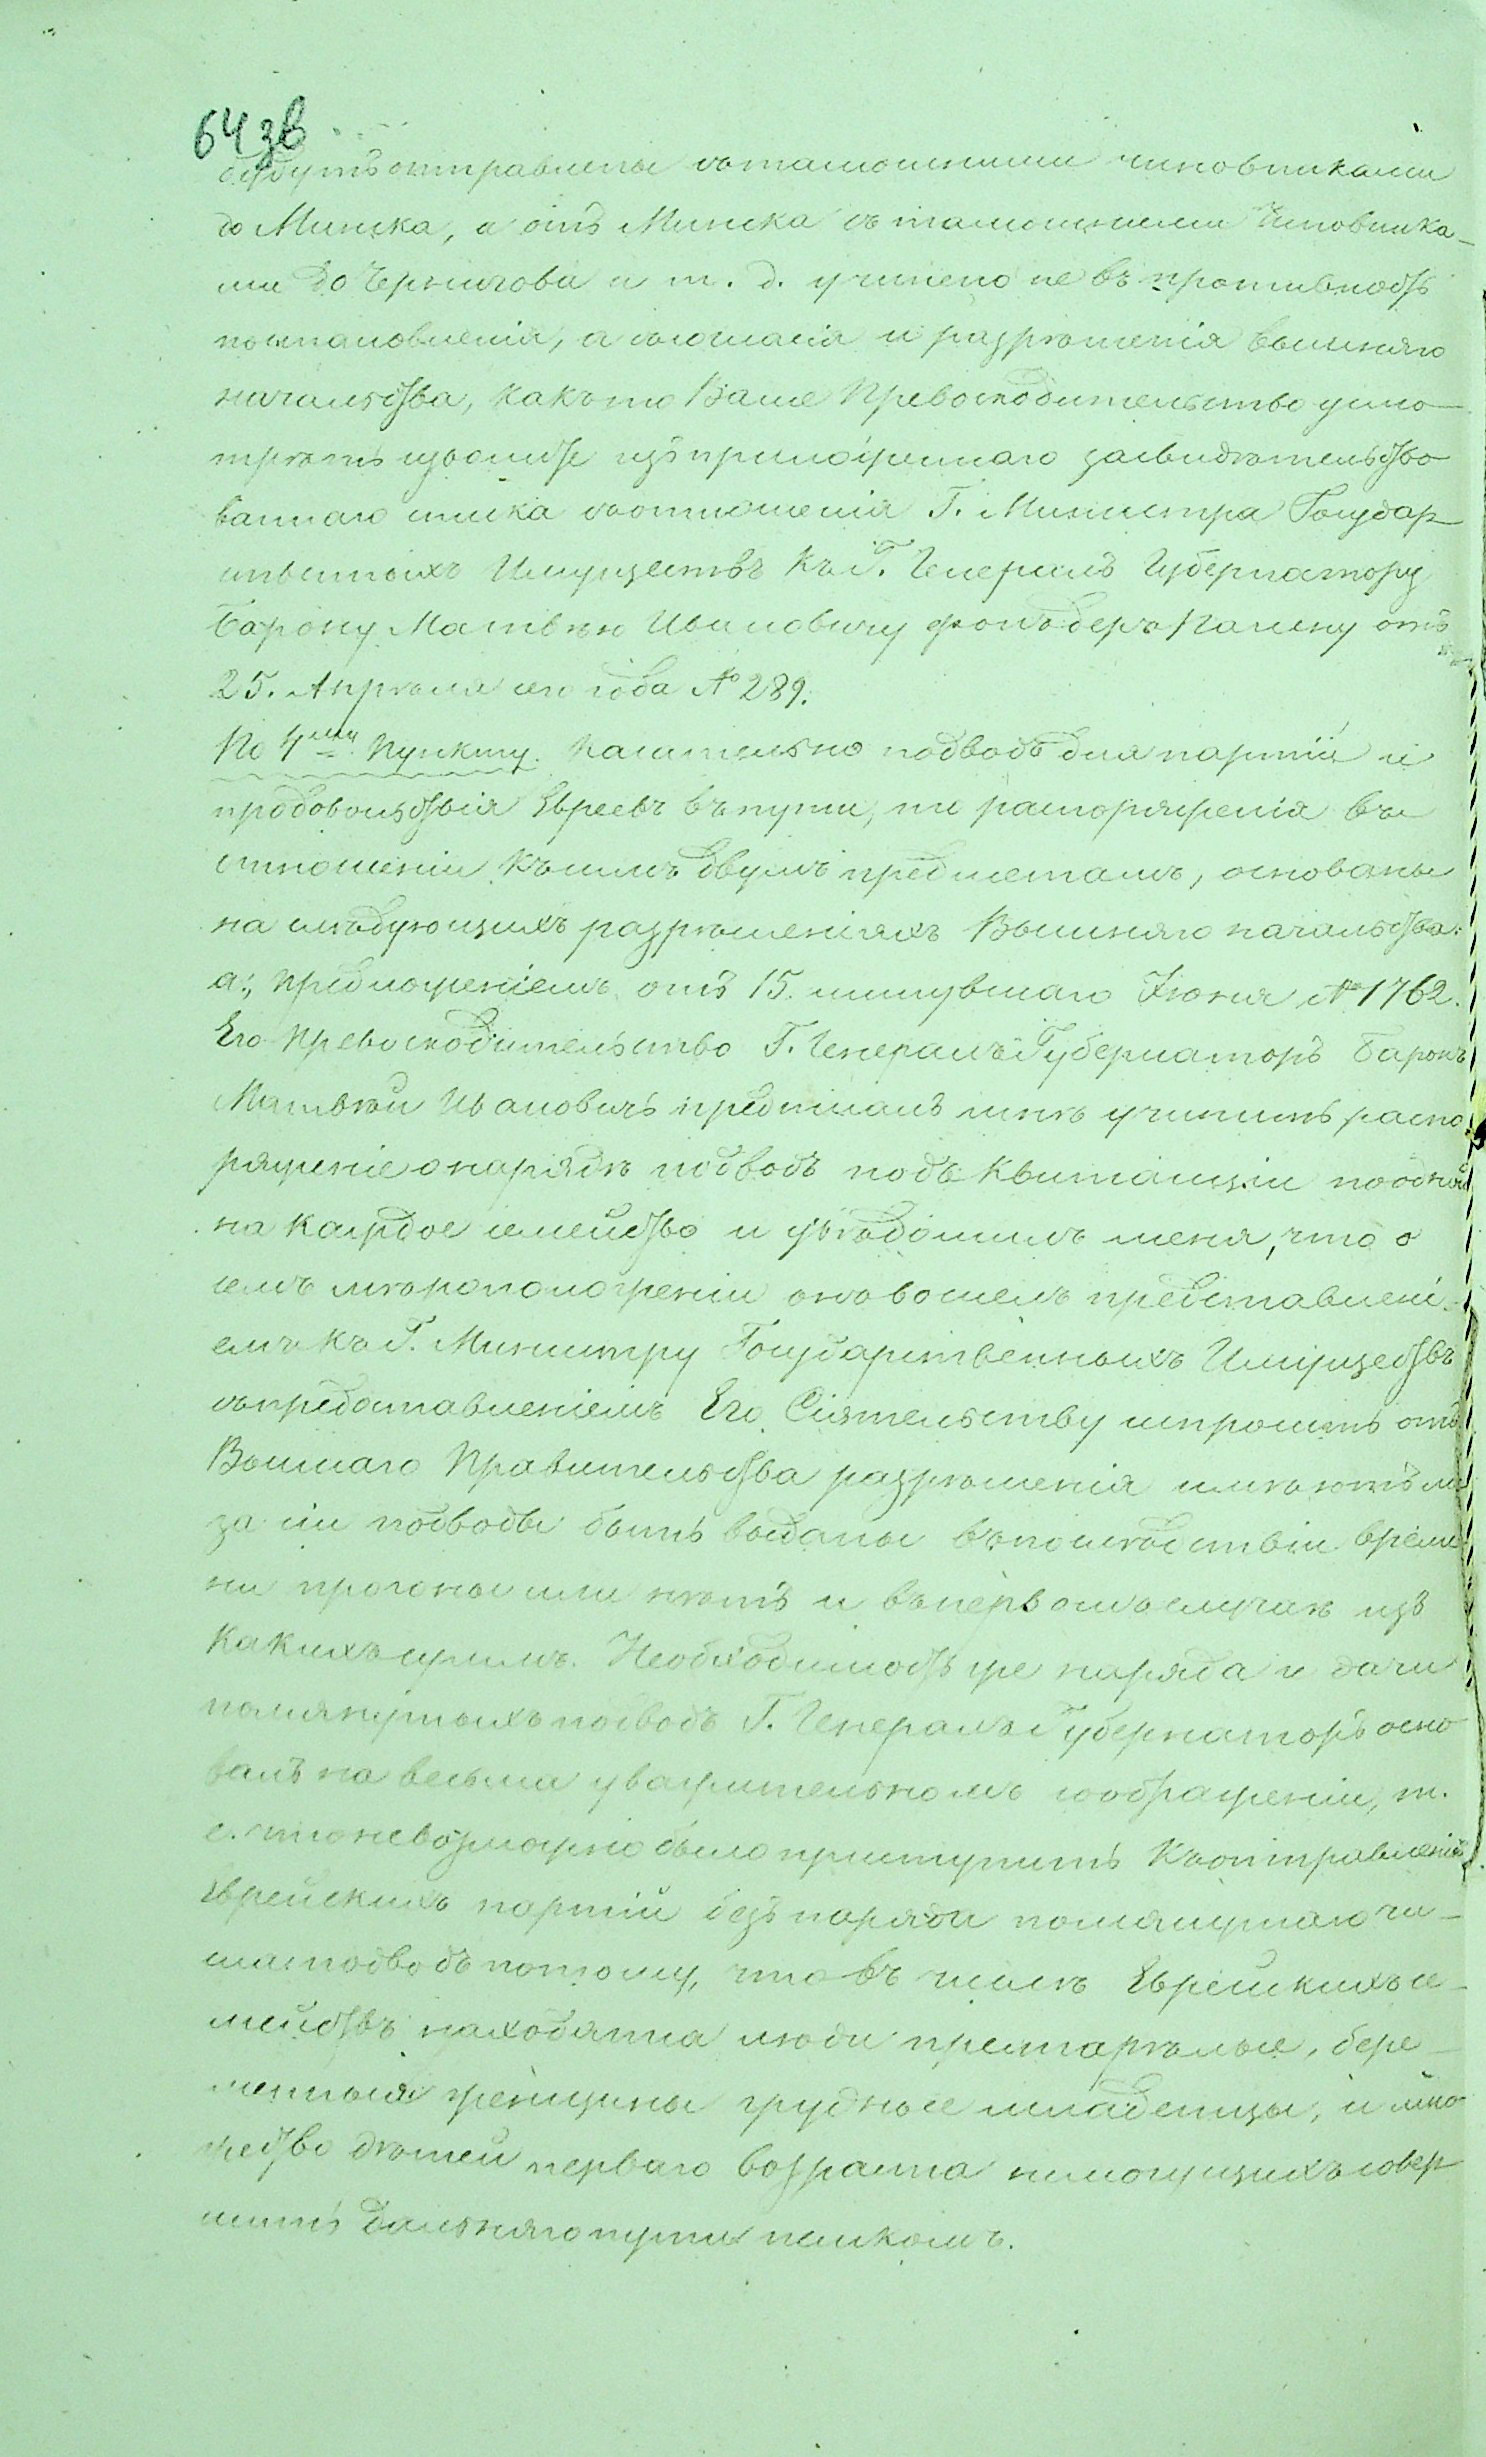 64 зв
будутъ отправлены съ тамошними чиновниками
до Минска, а отъ Минска съ тамошними чиновника-
ми до Чернигова и т. д. учинено не въ противность
постановленія, а согласія и разрѣшенія вышняго
начальства, какъ то Ваше Превосходительство усмо-
трѣть изволите изъ приложеннаго засвидѣтельство
ваннаго списка съ отношенія Г. Министра Государ-
ственныхъ Имуществъ къ Г. Генералъ Губернатору
Барону Матвѣю Ивановичу фонъ деръ Палену отъ
25. Апрѣля сего года № 289.
По 4му Пункту. Касательно подводъ для партіи и
продовольствія Евреевъ въ пути, то распоряженія въ
отношеніи къ симъ двумъ предметамъ, основаны
на слѣдующихъ разрѣшеніяхъ Вышняго начальства:
а., Предложеніемъ отъ 15. минувшаго Іюня № 1762.
Его Превосходительство Г. Генералъ Губернаторъ Баронъ
Матвѣй Ивановичъ предписалъ мнѣ учинить распо
ряженіе о нарядѣ подводъ подъ квитанціи по одной
на каждое семейство и увѣдомилъ меня, что о
семъ мѣроположеніи онъ вошелъ представлені-
емъ къ Г. Министру Государственныхъ Имуществъ
съ предоставленіемъ Его Сіятельству испросить отъ
Вышшаго Правительства разрѣшенія имѣютъ ли
за сіи подводы быть выданы въ послѣдствіи време
ни прогоны или нѣтъ и въ первомъ случаѣ изъ
какихъ суммъ. Необходимость же наряда и дачи
помянутыхъ подводъ Г. Генералъ Губернаторъ осно
валъ на весьма уважительномъ соображеніи, т.
е. что невозможно было приступить къ отправленію
Еврейскихъ партій безъ наряда помянутаго чи-
сла подводъ потому, что въ числѣ Еврейскихъ се-
мействъ находятся люди престарѣлые, бере-
менныя женщины грудные младенцы, и мно
жество дѣтей перваго возраста немогущихъ совер
шить дальняго пути пешкомъ.